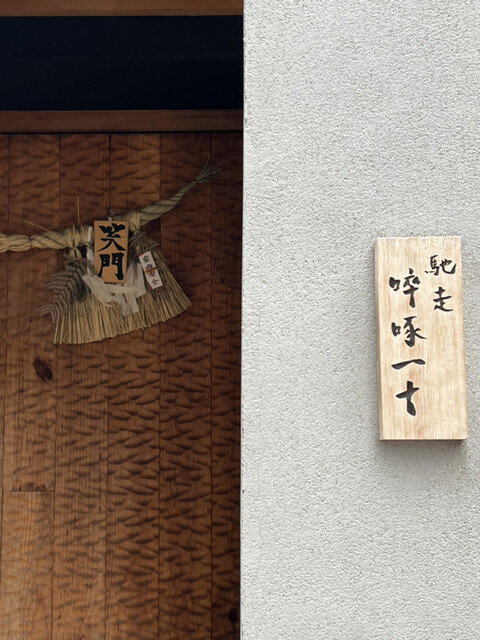 笑門
馳走
啐啄一十